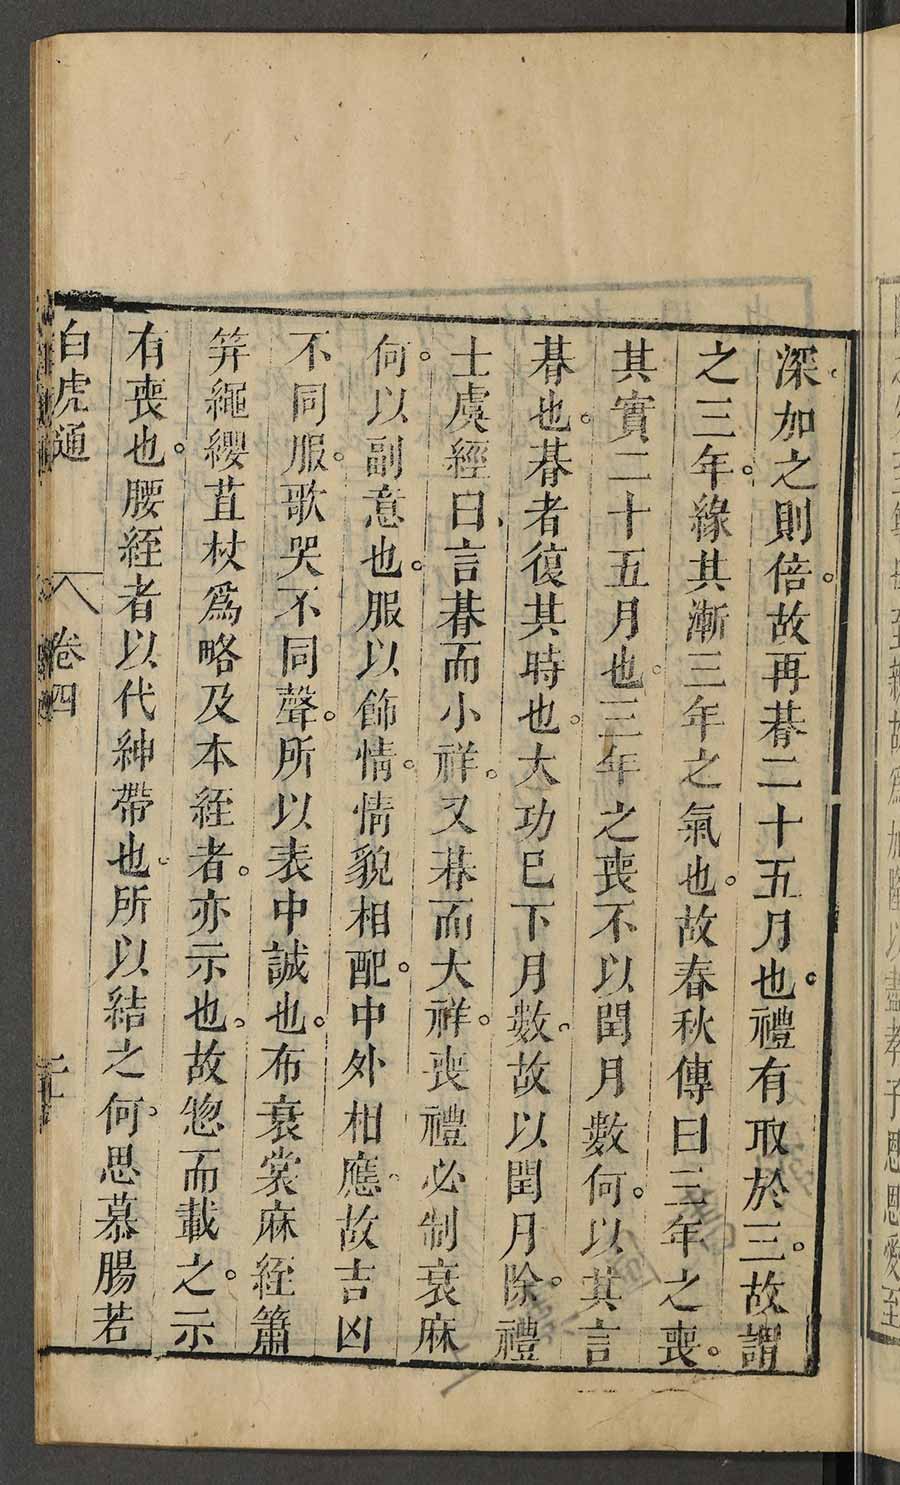 深。加之則倍。故再朞二十五月也。禮有取於三。故謂
之三年。緣其漸三年之氣也。故春秋傳曰三年之喪。
其實二十五月也。三年之喪不以閏月數何。以其言
朞也。朞者復其時也。大功已下月數。故以閏月除。禮
士虞經曰、言朞而小祥。又朞而大祥。喪禮必制衰麻
何。以副意也。服以飾情。情貌相配。中外相應。故吉凶
不同服。歌哭不同聲。所以表中誠也。布衰裳麻絰簫
筓繩纓苴杖爲略及本絰者。亦示也。故惣而載之。示
有喪也。腰絰者以代紳帶也。所以結之何。思慕腸若
白虎通 卷四